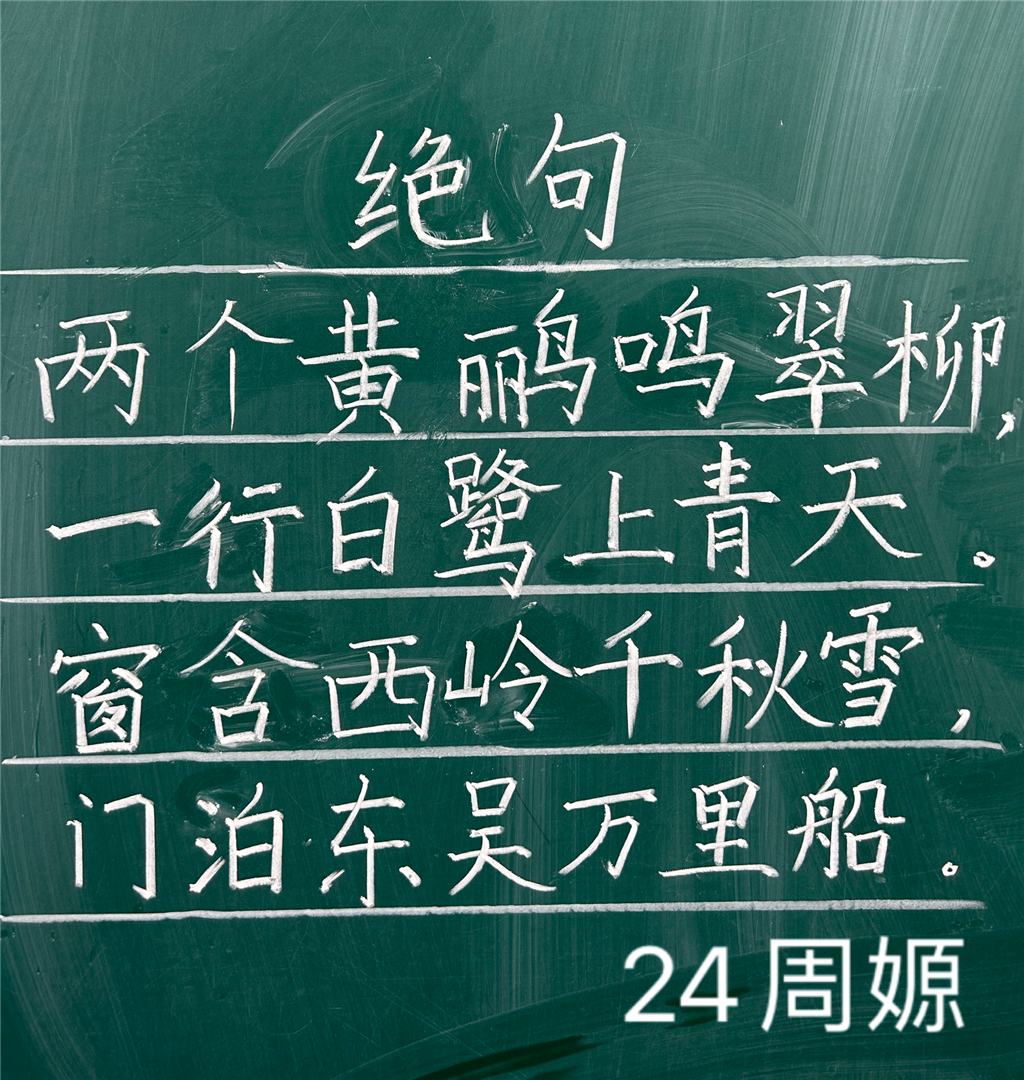 绝句
两个黄鹂鸣翠柳,
一行白鹭上青天。
窗含西岭千秋雪,
门泊东吴万里船。
24周嫄